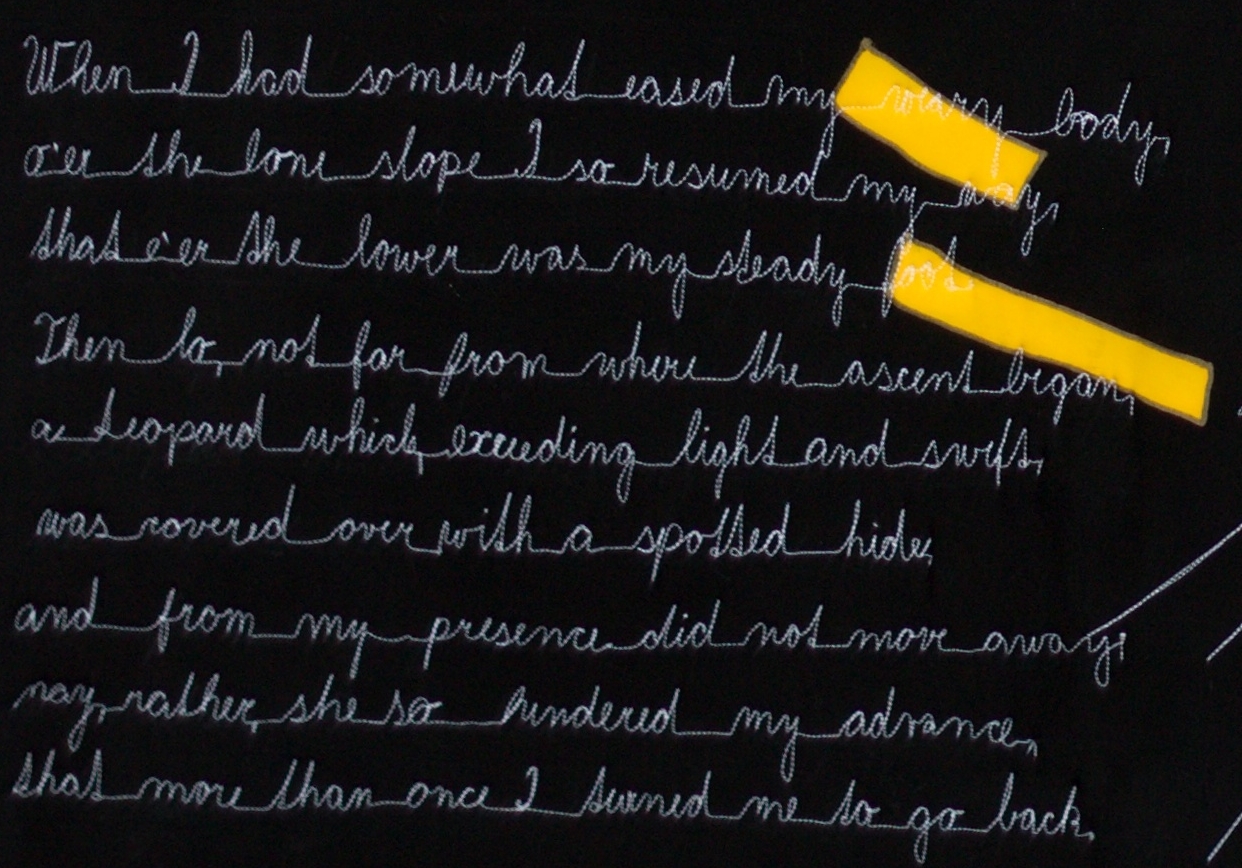 When I had somewhat eased my weary body,
o'er the lone slope I so resumed my way,
that e'er the lower was my steady foot.
Then lo, not far from where the ascent began,
a Leopard which, exceeding light and swift,
was covered over with a spotted hide,
and from my presence did not move away;
nay, rather, she so hindered my advance,
that more than once I turned me to go back.